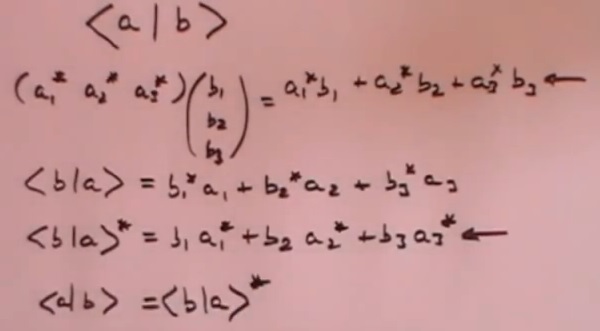 <a|b>
(a₁* a₂* a₃*) (b₁ b₂ b₃) = a₁*b₁ + a₂*b₂ + a₃*b₃ ←
<b|a> = b₁*a₁ + b₂*a₂ + b₃*a₃
<b|a>* = b₁a₁* + b₂ a₂* + b₃a₃* ←
<a|b> = <b|a>*